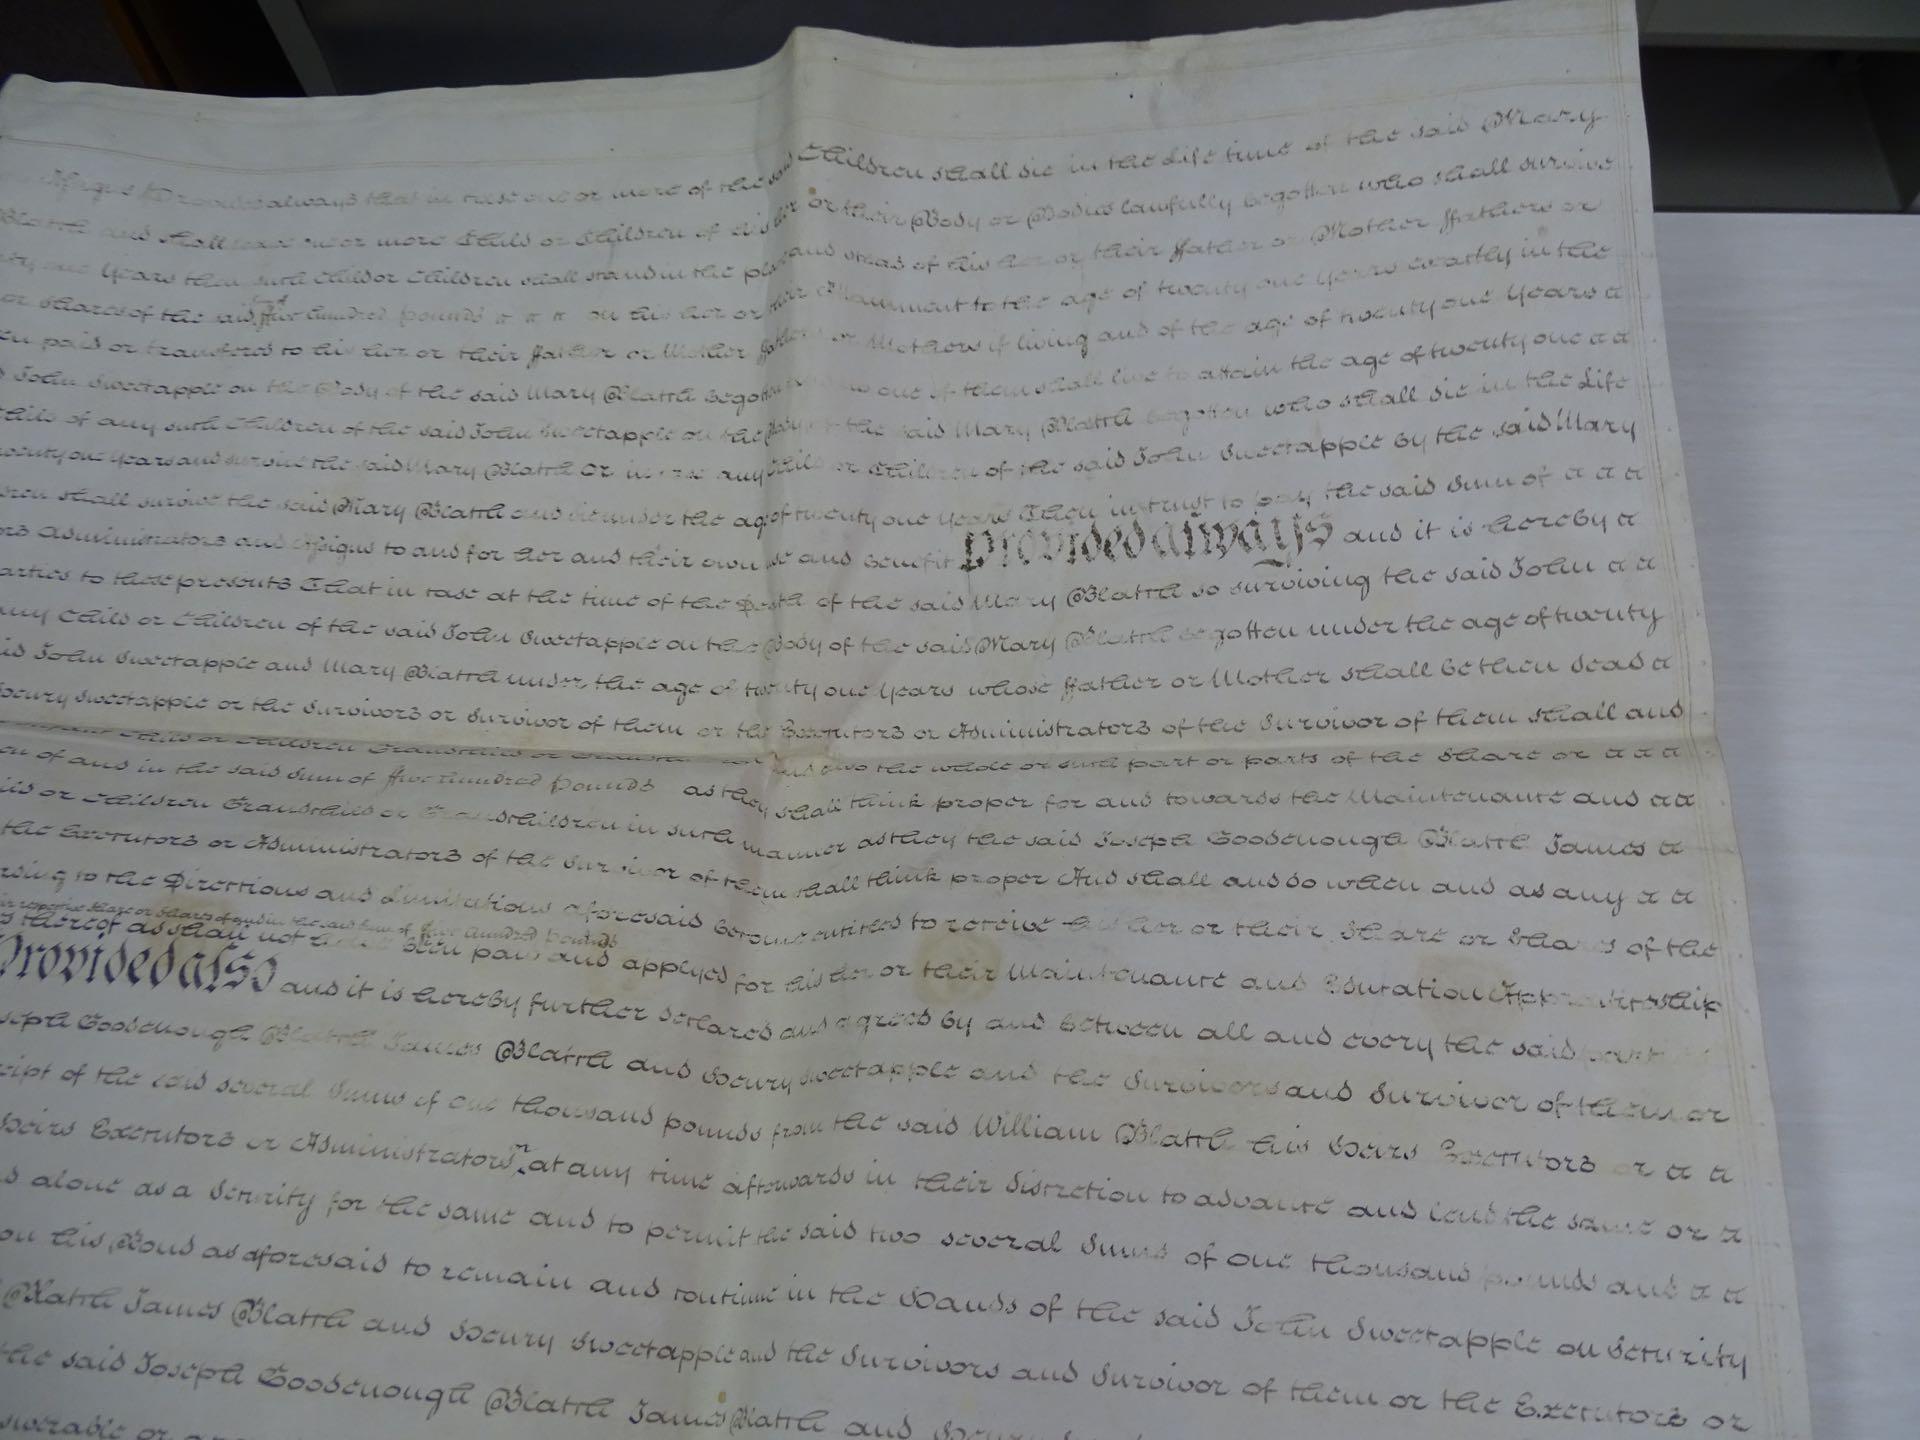 Assigns Provided always that in case one or more of the said Children shall die in the Life time of the said Mary
Blatch and shall leave one or more Child or Children of his her or their Body or Bodies lawfully begotten who shall survive
one Years then such Child or Children shall stand in the place and stead of his her or their ffather or Mother ffathers or
or Shares of the said five hundred pounds on his her or their Attainment to the age of twenty one Years exactly in the
paid or transfered to his her or their ffather or Mother ffathers or Mothers if living and of the age of twenty one Years
John Sweetapple on the Body of the said Mary Blatch begotten one of them shall live to attain the age of twenty one
of any such Children of the said John Sweetapple on the Body of the said Mary Blatch begotten who shall die in the Life
twenty one Years and survive the said Mary Blatch Or in case any Child or Children of the said John Sweetapple by the said Mary
shall survive the said Mary Blatch and die under the age of twenty one Years Then in trust to pay the said Sum of
Administrators and Assigns to and for her and their own use and benefit Provided always and it is hereby
parties to these presents That in case at the time of the Death of the said Mary Blatch so surviving the said John
any Child or Children of the said John Sweetapple on the Body of the said Mary Blatch begotten under the age of twenty
said John Sweetapple and Mary Blatch under the age of twenty one Years whose ffather or Mother shall be then dead
Henry Sweetapple or the Survivors or Survivor of them or the Executors or Administrators of the Survivor of them shall and
Child or Children Grandchild or the whole or such part or parts of the Share or
of and in the said Sum of ffive hundred pounds as they shall think proper for and towards the Maintenance and
or Children Grandchild or Grandchildren in such manner as they the said Joseph Goodenough Blatch James
the Executors or Administrators of the Survivor of them shall think proper And shall and do when and as any
to the Directions and Limitations aforesaid become entitled to receive his her or their Share or Shares of the
respective Share or Shares of and in the said Sum of five hundred pounds
thereof as shall not have been paid and applyed for his her or their Maintenance and Education Apprenticeship
Provided also and it is hereby further declared and agreed by and between all and every the said
Joseph Goodenough Blatch James Blatch and Henry Sweetapple and the Survivors and Survivor of them or
receipt of the said several Sums of one thousand pounds from the said William Blatch his Heirs Executors or
Heirs Executors or Administrators at any time afterwards in their discretion to advance and lend the same or
alone as a Security for the same and to permit the said two several Sums of one thousand pounds and
on his Bond as aforesaid to remain and continue in the Hands of the said John Sweetapple on Security
Blatch James Blatch and Henry Sweetapple and the Survivors and Survivor of them or the Executors or
the said Joseph Goodenough Blatch James Blatch and Henry